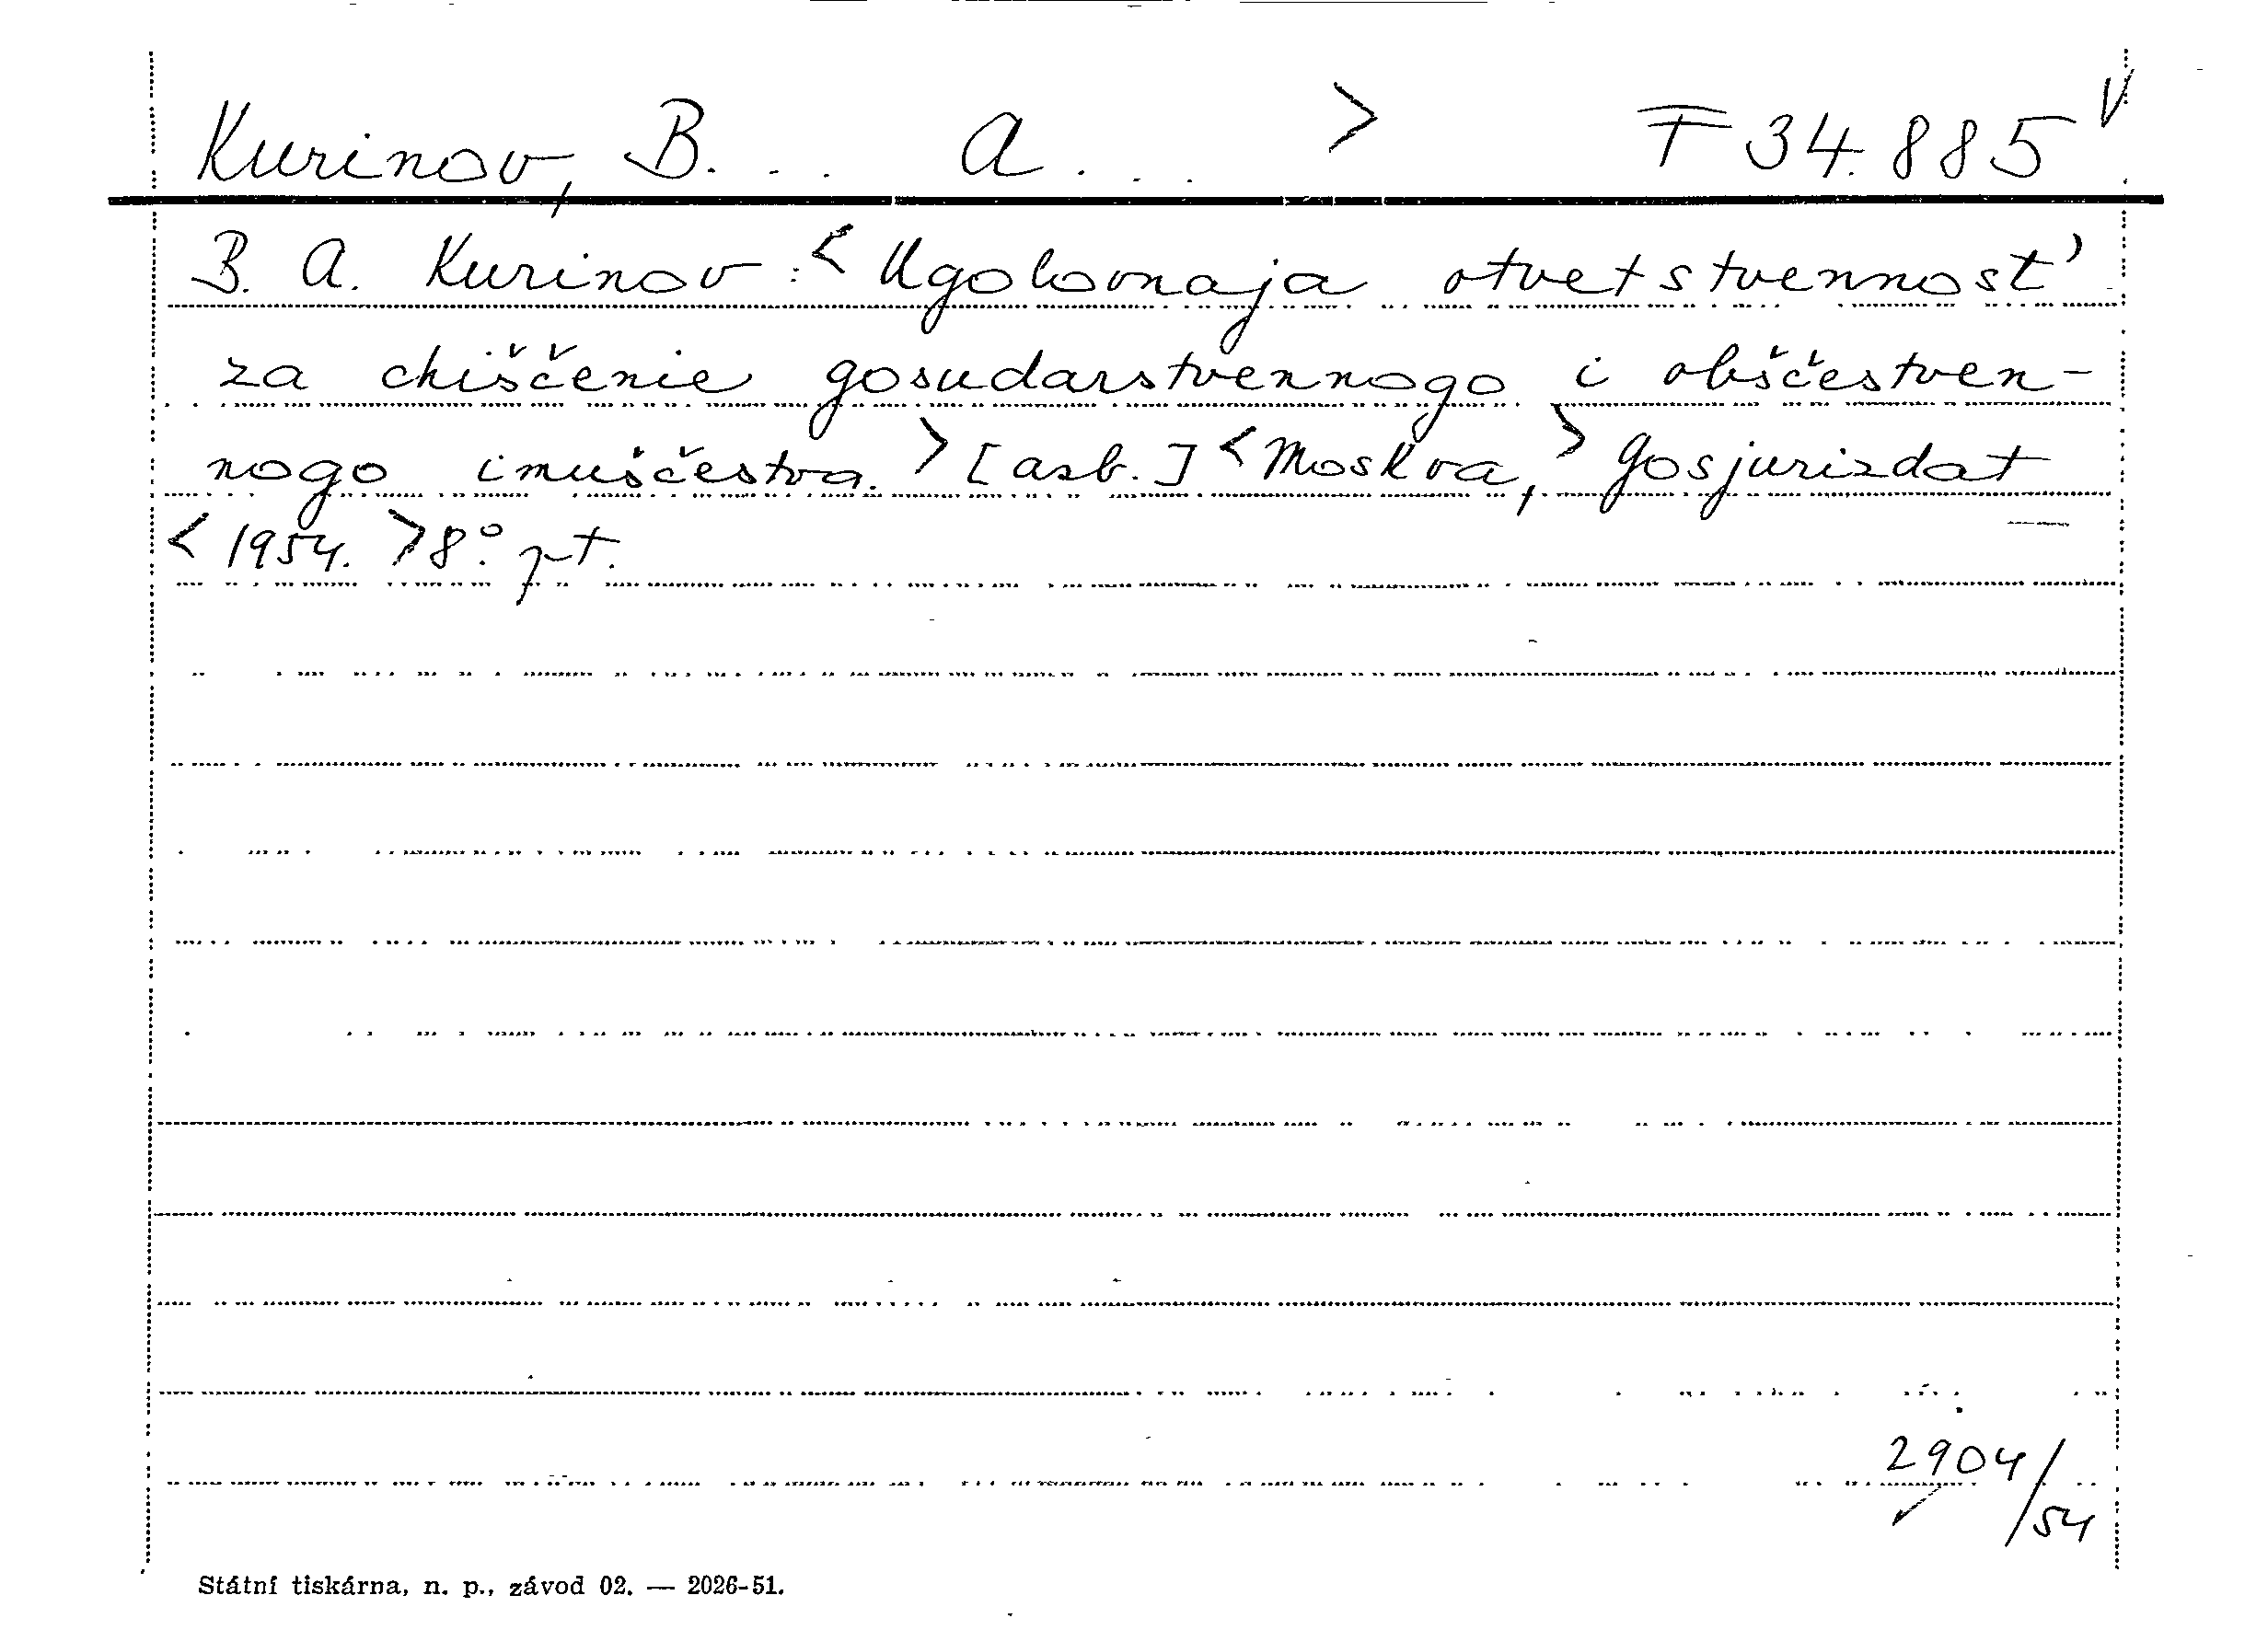 Kurinov, B. . . A . . . > F 34.885 V
B. A. Kurinov: < Ugolovnaja otvetstvennost'
za chiščenie gosudarstvennogo i obščestven-
nogo imuščestva. > [azb.] < Moskva, > Gosjurizdat
< 1954. > 8°. pt.
2904/54
Státní tiskárna, n. p., závod 02. — 2026-51.